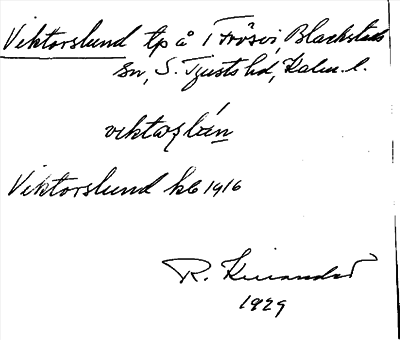 Viktorslund tp å 1 Frösvi, Blackstads
sn, S. Tjusts hd, Kalm. l.
viktorslún
Viktorslund kb 1916
R.
1929